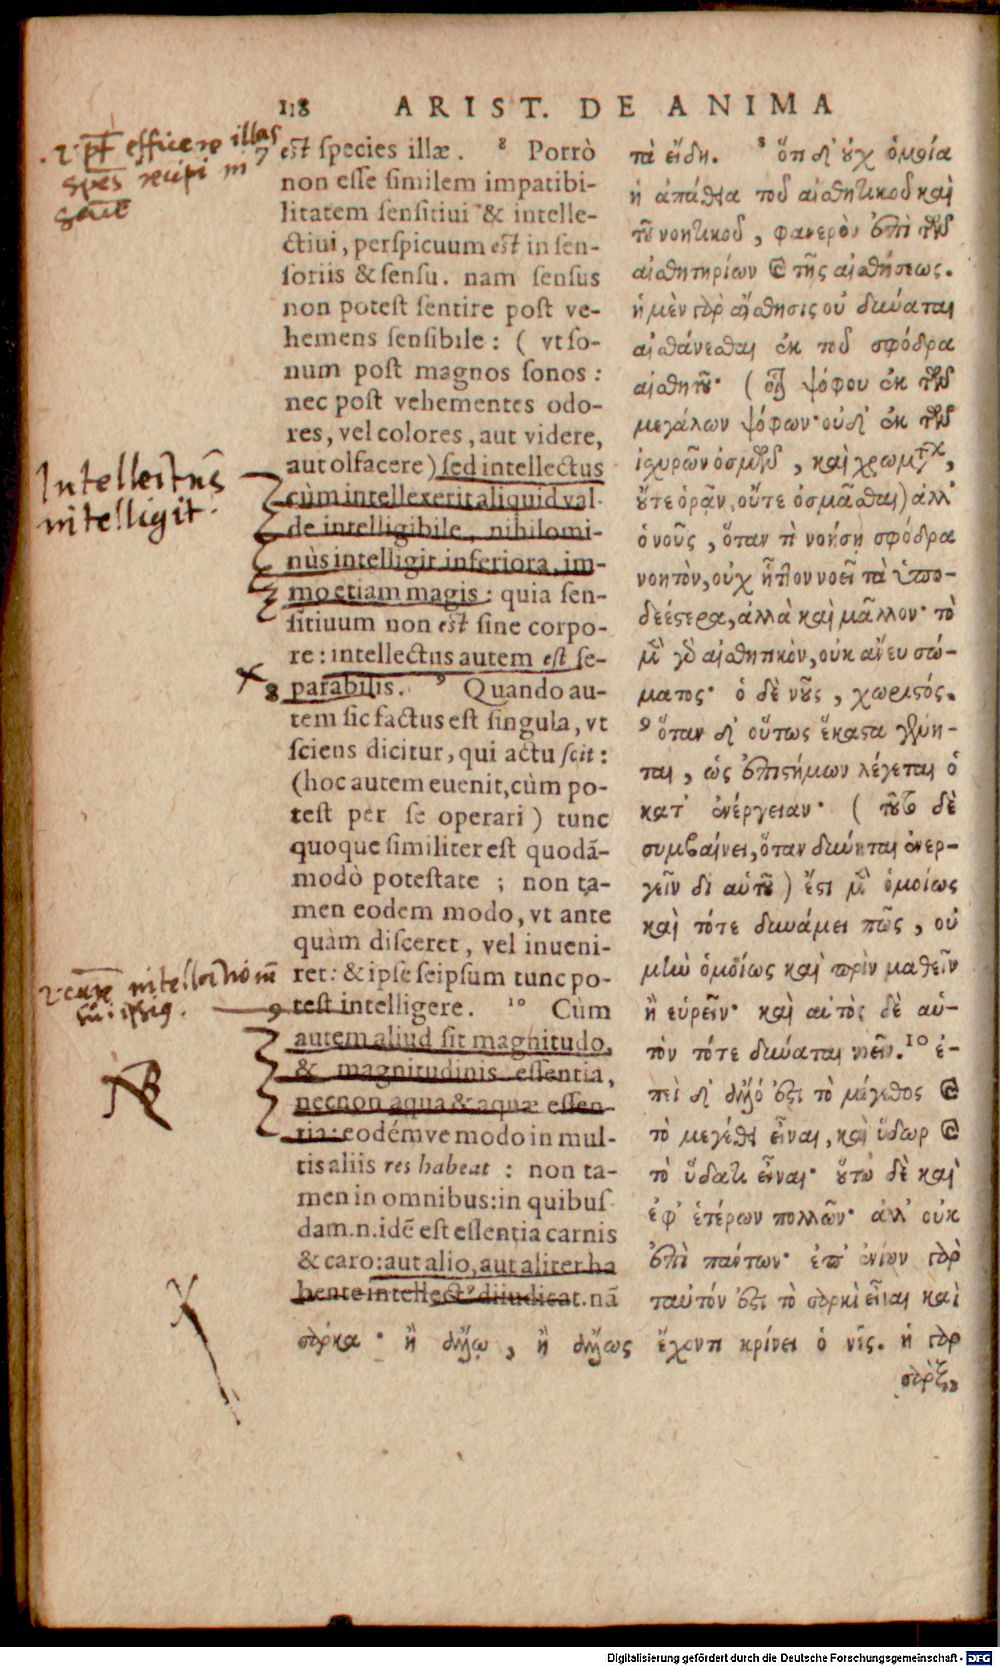 118 ARIST. DE ANIMA
est species illæ. 8 Porrò
non esse similem impatibi-
litatem sensitiui & intelle-
ctiui, perspicuum est in sen-
soriis & sensu. nam sensus
non potest sentire post ve-
hemens sensibile: ( vt so-
num post magnos sonos:
nec post vehementes odo-
res, vel colores, aut videre,
aut olfacere) sed intellectus
cùm intellexerit aliquid val-
de intelligibile, nihilomi-
nùs intelligit inferiora, im-
mo etiam magis: quia sen-
sitiuum non est sine corpo-
re: intellectus autem est se-
parabilis. 9 Quando au-
tem sic factus est singula, vt
sciens dicitur, qui actu scit:
(hoc autem euenit, cùm po-
test per se operari) tunc
quoque similiter est quodã-
modò potestate ; non ta-
men eodem modo, vt ante
quàm disceret, vel inueni-
ret: & ipse seipsum tunc po-
test intelligere. 10 Cùm
autem aliud sit magnitudo,
& magnitudinis essentia,
necnon aqua & aquæ essen-
tia: eodémve modo in mul-
tis aliis res habeat : non ta-
men in omnibus: in quibus
dam.n.idẽ est essentia carnis
& caro: aut alio, aut aliter ha
bente intellectꝰ diiudicat. nã
τὰ εἴδη. 8 ὅτι δ' οὐχ ὁμοία
ἡ ἀπάθεια τοῦ αἰσθητικοῦ καὶ
τοῦ νοητικοῦ, φανερὸν ἐπὶ τῶν
αἰσθητηρίων καὶ τῆς αἰσθήσεως.
ἡ μὲν γὰρ αἴσθησις οὐ δύναται
αἰσθάνεσθαι ἐκ τοῦ σφόδρα
αἰσθητοῦ· (οἷον ψόφου ἐκ τῶν
μεγάλων ψόφων· οὐδ' ἐκ τῶν
ἰσχυρῶν ὀσμῶν, καὶ χρωμάτων,
οὔτε ὁρᾷν, οὔτε ὀσμᾶσθαι) ἀλλ'
ὁ νοῦς, ὅταν τὶ νοήσῃ σφόδρα
νοητὸν, οὐχ ἧττον νοεῖ τὰ ὑπο-
δεέστερα, ἀλλὰ καὶ μᾶλλον· τὸ
μὲν γὰρ αἰσθητικὸν, οὐκ ἄνευ σώ-
ματος· ὁ δὲ νοῦς, χωριστός.
9 ὅταν δ' οὕτως ἕκαστα γένη-
ται, ὡς ἐπιστήμων λέγεται ὁ
κατ' ἐνέργειαν· ( τοῦτο δὲ
συμβαίνει, ὅταν δύνηται ἐνερ-
γεῖν δι' αὑτοῦ) ἔστι μὲν ὁμοίως
καὶ τότε δυνάμει πῶς, οὐ
μὴν ὁμοίως καὶ πρὶν μαθεῖν
ἢ εὑρεῖν· καὶ αὐτὸς δὲ αὑ-
τὸν τότε δύναται νοεῖν. 10 ἐ-
πεὶ δ' ἄλλό ἐστι τὸ μέγεθος καὶ
τὸ μεγέθει εἶναι, καὶ ὕδωρ καὶ
τὸ ὕδατι εἶναι· οὕτω δὲ καὶ
ἐφ' ἑτέρων πολλῶν· ἀλλ' οὐκ
ἐπὶ πάντων· ἐπ' ἐνίων γὰρ
ταὐτόν ἐστι τὸ σαρκὶ εἶναι καὶ
σάρκα· ἢ ἄλλῳ, ἢ ἄλλως ἔχοντι κρίνει ὁ νοῦς. ἡ γὰρ
σὰρξ
Intellectus
intelligit.
8
9
Digitalisierung gefördert durch die Deutsche Forschungsgemeinschaft - DFG